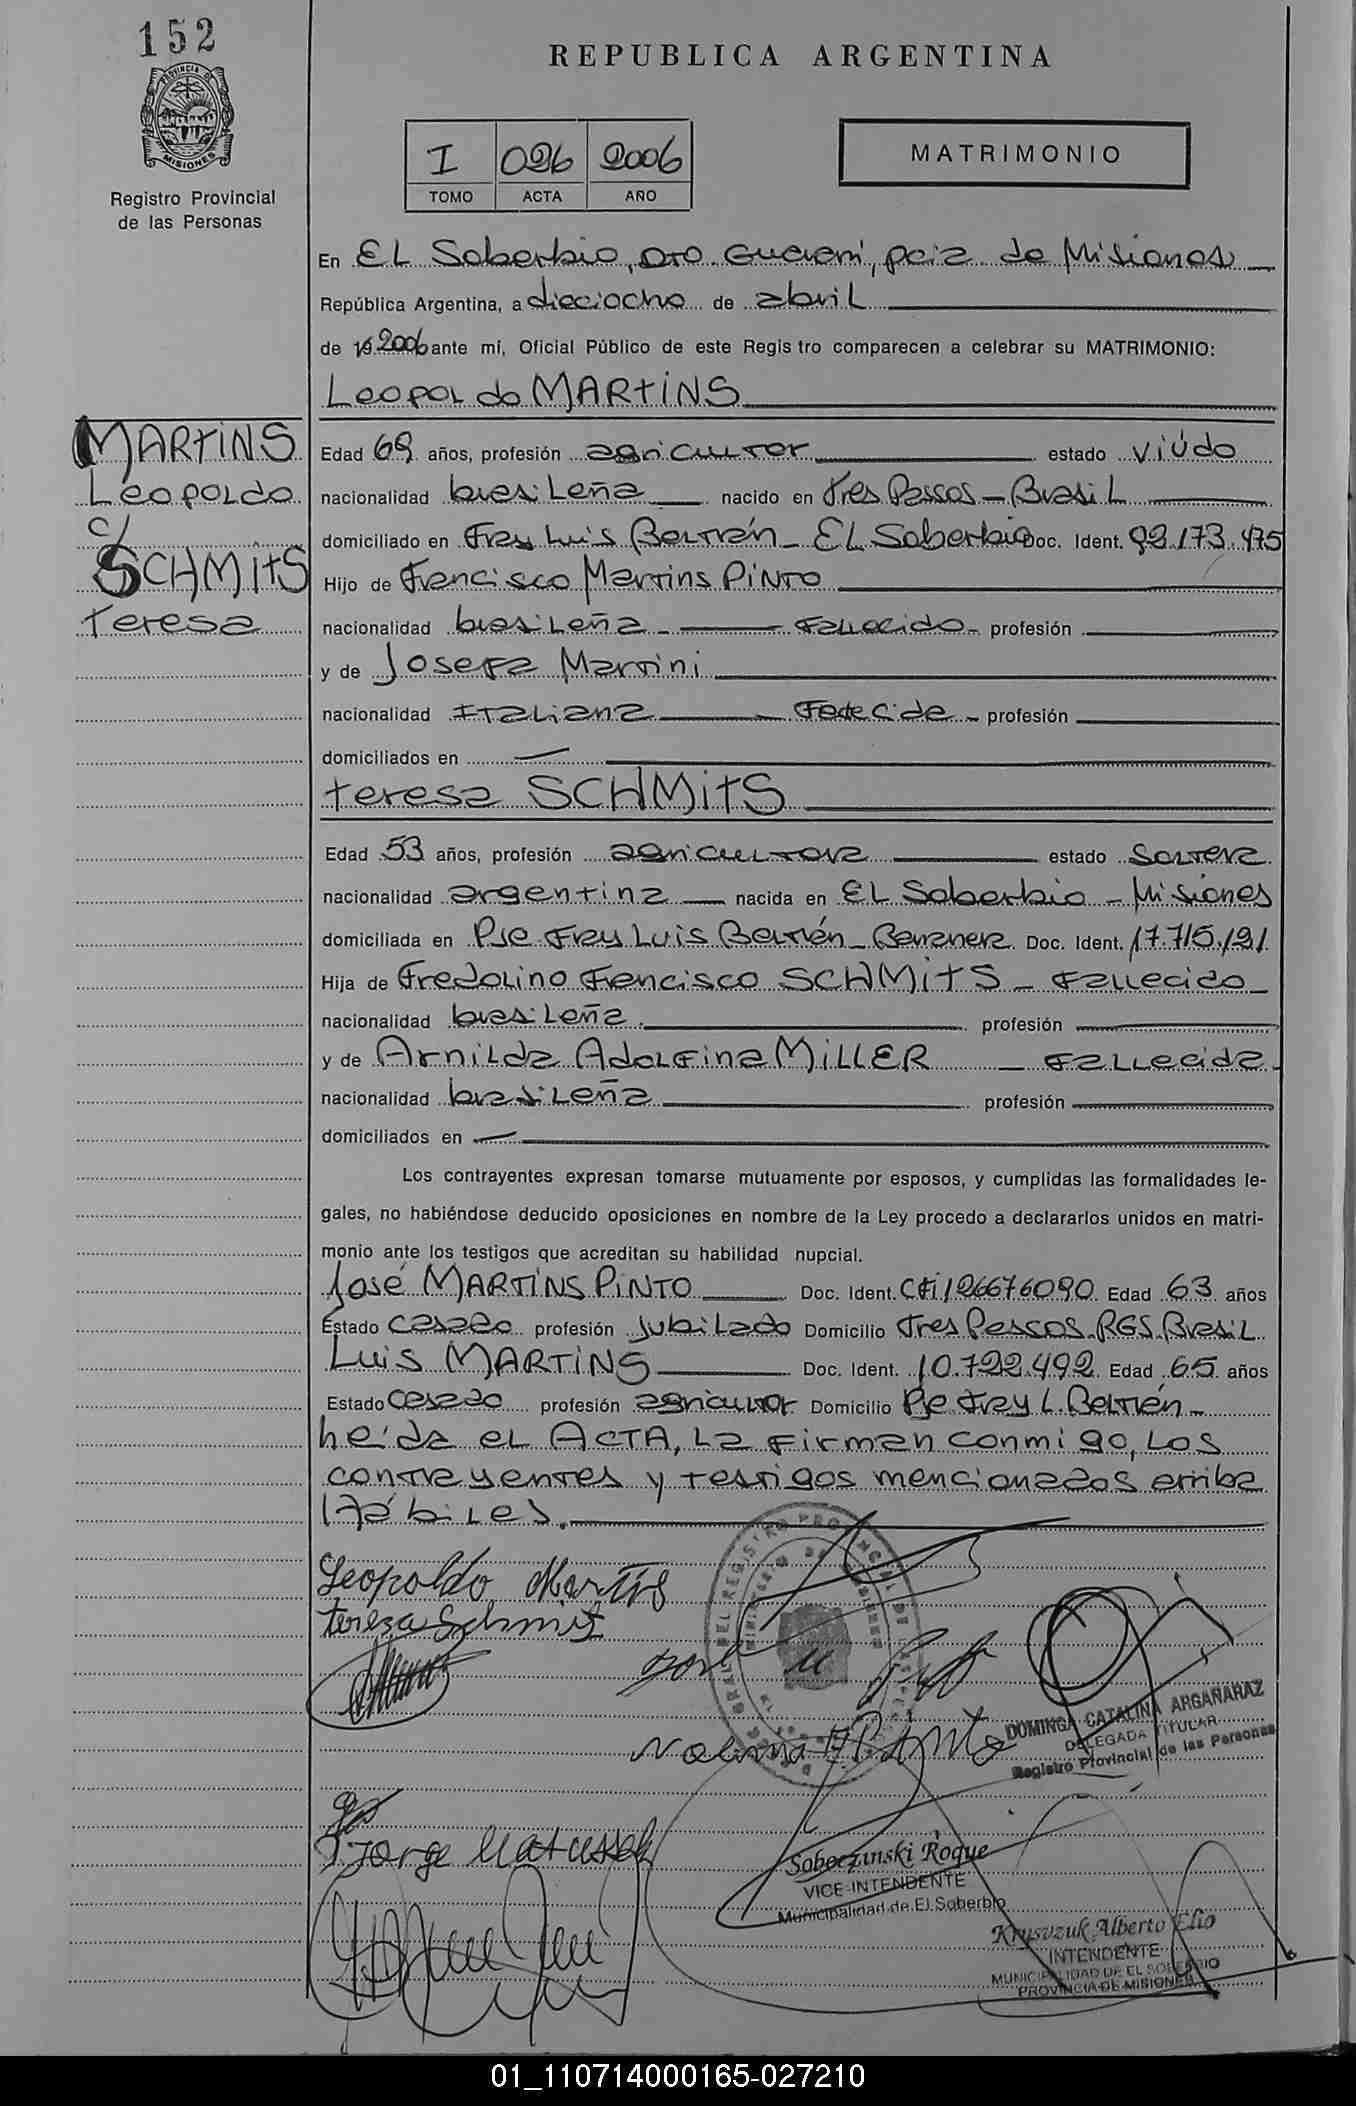 152
PROVINCIA DE
MISIONES
Registro Provincial
de las Personas
REPUBLICA ARGENTINA
I 026 2006
TOMO ACTA AÑO
MATRIMONIO
En EL Soberbio, DTO Guaraní, pcia de Misiones
República Argentina, a dieciocho de abril
de 19 2006 ante mí, Oficial Público de este Registro comparecen a celebrar su MATRIMONIO:
Leopoldo MARTINS
MARTINS
Leopoldo
c/
SCHMITS
Teresa
Edad 69 años, profesión agricultor estado viúdo
nacionalidad brasileña nacido en Tres Passos - Brasil
domiciliado en Fray Luis Beltrán - EL Soberbio Doc. Ident. 92.173.475
Hijo de Francisco Martins PINTO
nacionalidad brasileña - fallecido - profesión
y de Josefa Martini
nacionalidad Italiana profesión
domiciliados en
Teresa SCHMITS
Edad 53 años, profesión agricultora estado soltera
nacionalidad argentina nacida en EL Soberbio - Misiones
domiciliada en Pje Fray Luis Beltrán - Doc. Ident. 17.715.121
Hija de Fredolino Francisco SCHMITS - fallecido
nacionalidad brasileña profesión
y de Arnilda Adolfina MILLER - fallecida
nacionalidad brasileña profesión
domiciliados en
Los contrayentes expresan tomarse mutuamente por esposos, y cumplidas las formalidades le-
gales, no habiéndose deducido oposiciones en nombre de la Ley procedo a declararlos unidos en matri-
monio ante los testigos que acreditan su habilidad nupcial.
José MARTINS PINTO Doc. Ident. Edad 63 años
Estado casado profesión jubilado Domicilio Tres Passos RGS. Brasil
Luis MARTINS Doc. Ident. 10.722.492 Edad 65 años
Estado casado profesión agricultor Domicilio Pje Fray L. Beltrán
Leída el ACTA, la firman conmigo, los
contrayentes y testigos mencionados arriba
hábiles.
Leopoldo Martins
teresa Schmits
DOMINGA CATALINA ARGAÑARAZ
DELEGADA TITULAR
Registro Provincial de las Personas
Jorge
Sobeczinski Roque
VICE-INTENDENTE
Municipalidad de El Soberbio
Krysvzuk Alberto Elio
INTENDENTE
MUNICIPALIDAD DE EL SOBERBIO
PROVINCIA DE MISIONES
01_110714000165-027210